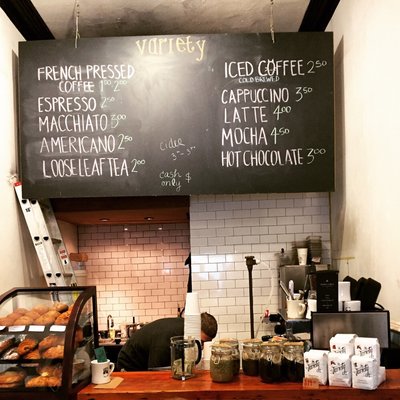 variety
FRENCH PRESSED
COFFEE 1.50 2.00
ESPRESSO 2.50
MACCHIATO 3.00
AMERICANO 2.50
LOOSE LEAF TEA 2.00
cider
cash $
only
ICED COFFEE 2.50
COLD BREWED
CAPPUCCINO 3.50
LATTE 4.00
MOCHA 4.50
HOT CHOCOLATE 3.00